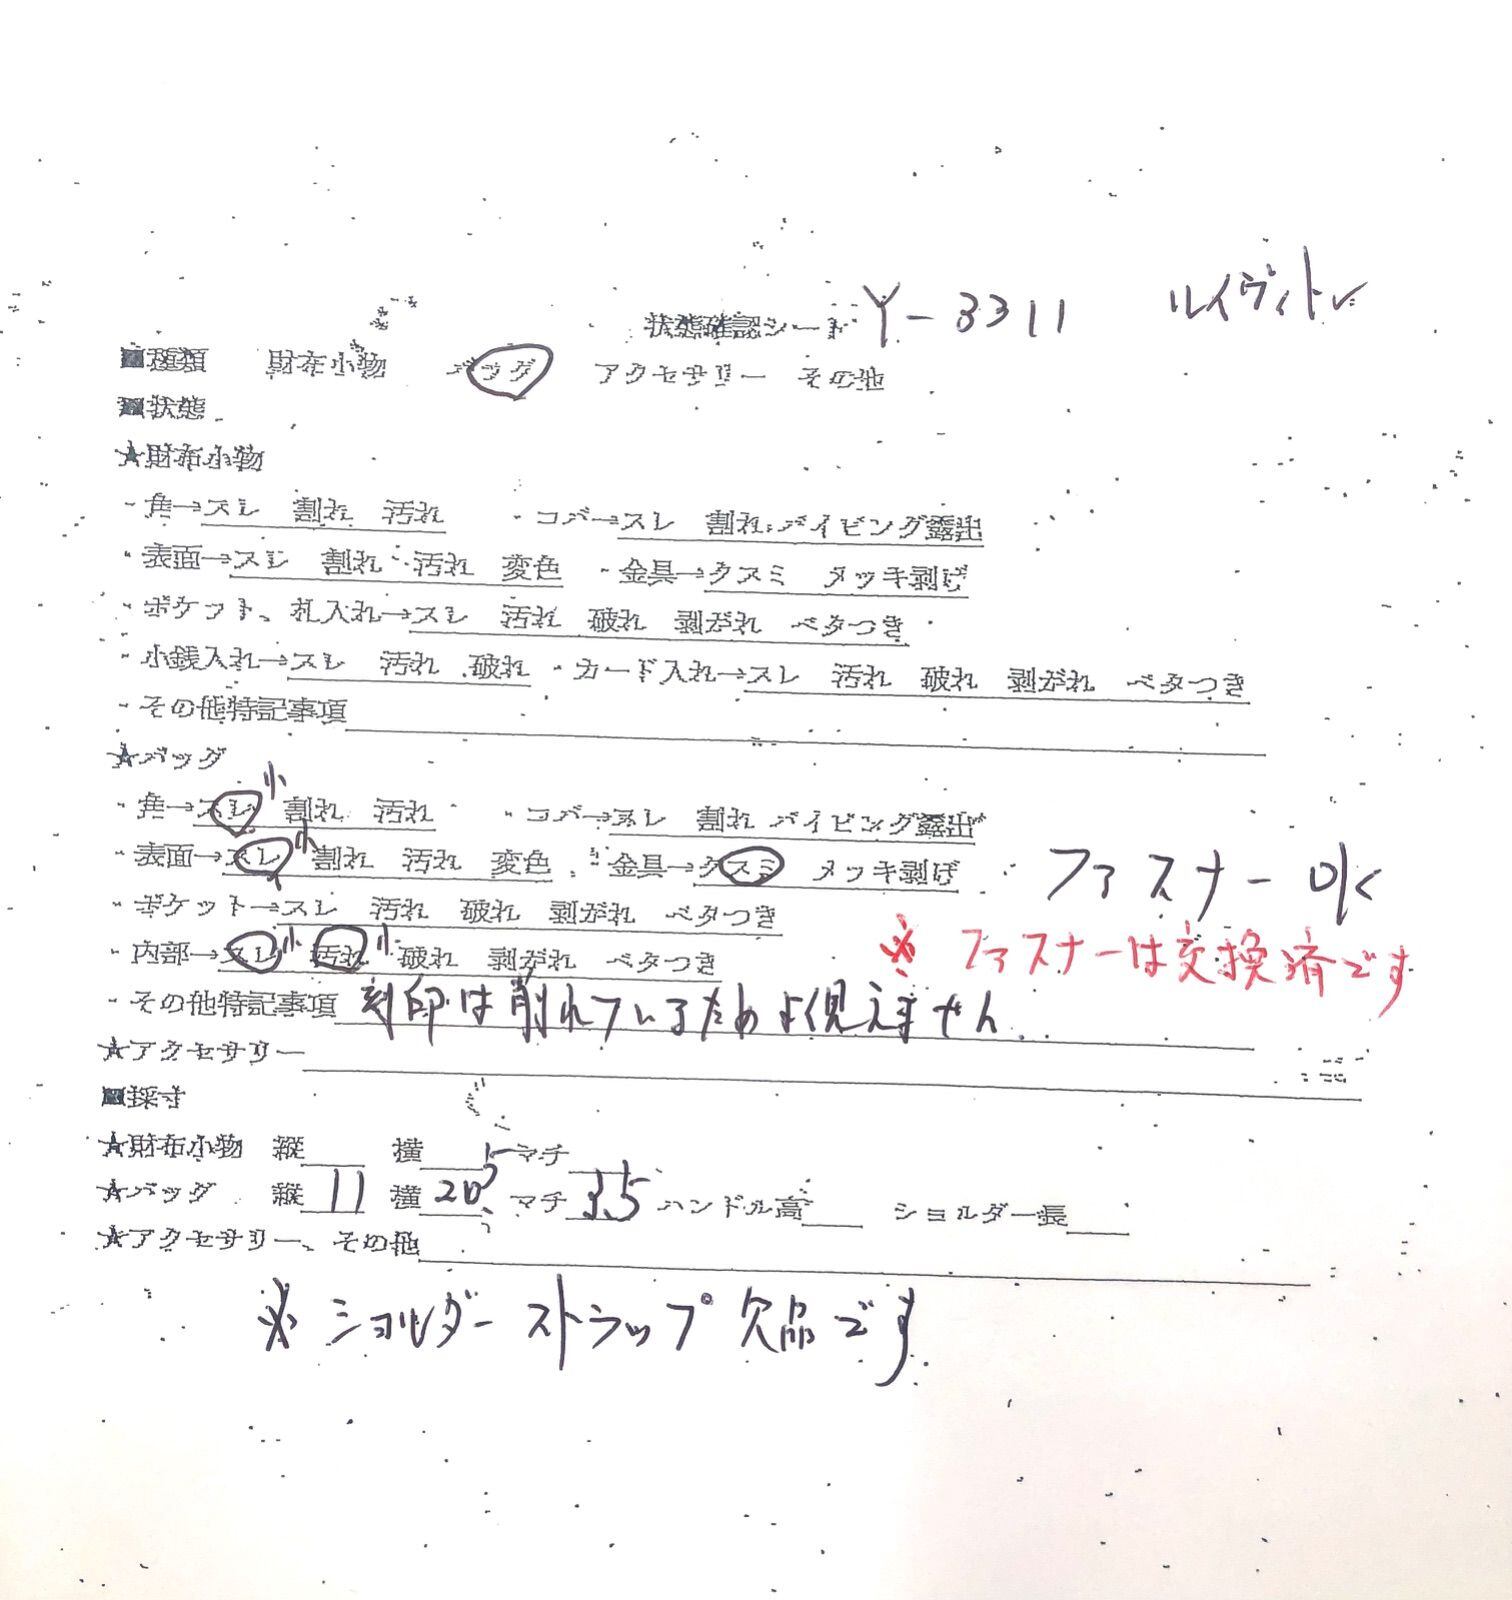 状態確認シート Y-3311 ルイヴィトン
■種類 財布小物 バッグ アクセサリー その他
■状態
★財布小物
・角→スレ 割れ 汚れ ・コバ→スレ 割れ パイピング露出
・表面→スレ 割れ 汚れ 変色 ・金具→クスミ メッキ剥げ
・ポケット、札入れ→スレ 汚れ 破れ 剥がれ ベタつき
・小銭入れ→スレ 汚れ 破れ ・カード入れ→スレ 汚れ 破れ 剥がれ ベタつき
・その他特記事項
★バッグ
・角→スレ小 割れ 汚れ ・コバ→スレ 割れ パイピング露出
・表面→スレ小 割れ 汚れ 変色 ・金具→クスミ メッキ剥げ ファスナーOK
・ポケット→スレ 汚れ 破れ 剥がれ ベタつき
※ ファスナーは交換済です
・内部→スレ小 汚れ小 破れ 剥がれ ベタつき
・その他特記事項 刻印は削れているためよく見えません
★アクセサリー
■採寸
★財布小物 縦 横 マチ
★バッグ 縦 11 横 20.5 マチ 3.5 ハンドル高 ショルダー長
★アクセサリー、その他
※ ショルダーストラップ欠品です